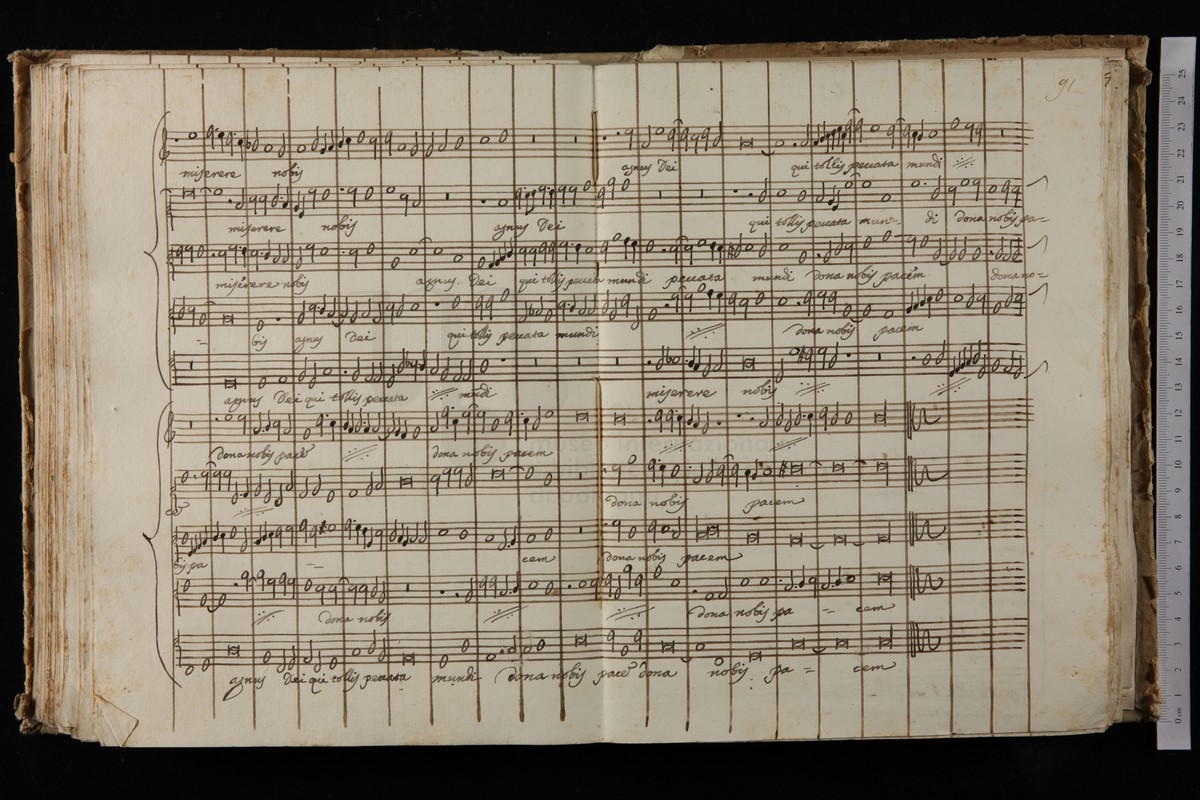 91 5
miserere nobis agnus Dei qui tollis peccata mundi
miserere nobis agnus Dei qui tollis peccata mun- di dona nobis pa=
miserere nobis agnus Dei qui tollis peccata mundi peccata mundi dona nobis pacem dona no=
= bis agnus Dei qui tollis peccata mundi dona nobis pacem
agnus Dei qui tollis peccata mūdi miserere nobis
dona nobis pacē dona nobis pacem
dona nobis pacem
bis pa = cem dona nobis pacem
dona nobis dona nobis pa = cem
agnus Dei qui tollis peccata mundi dona nobis pacē dona nobis pa = cem
museo internazionale
0 cm 1 2 3 4 5 6 7 8 9 10 11 12 13 14 15 16 17 18 19 20 21 22 23 24 25